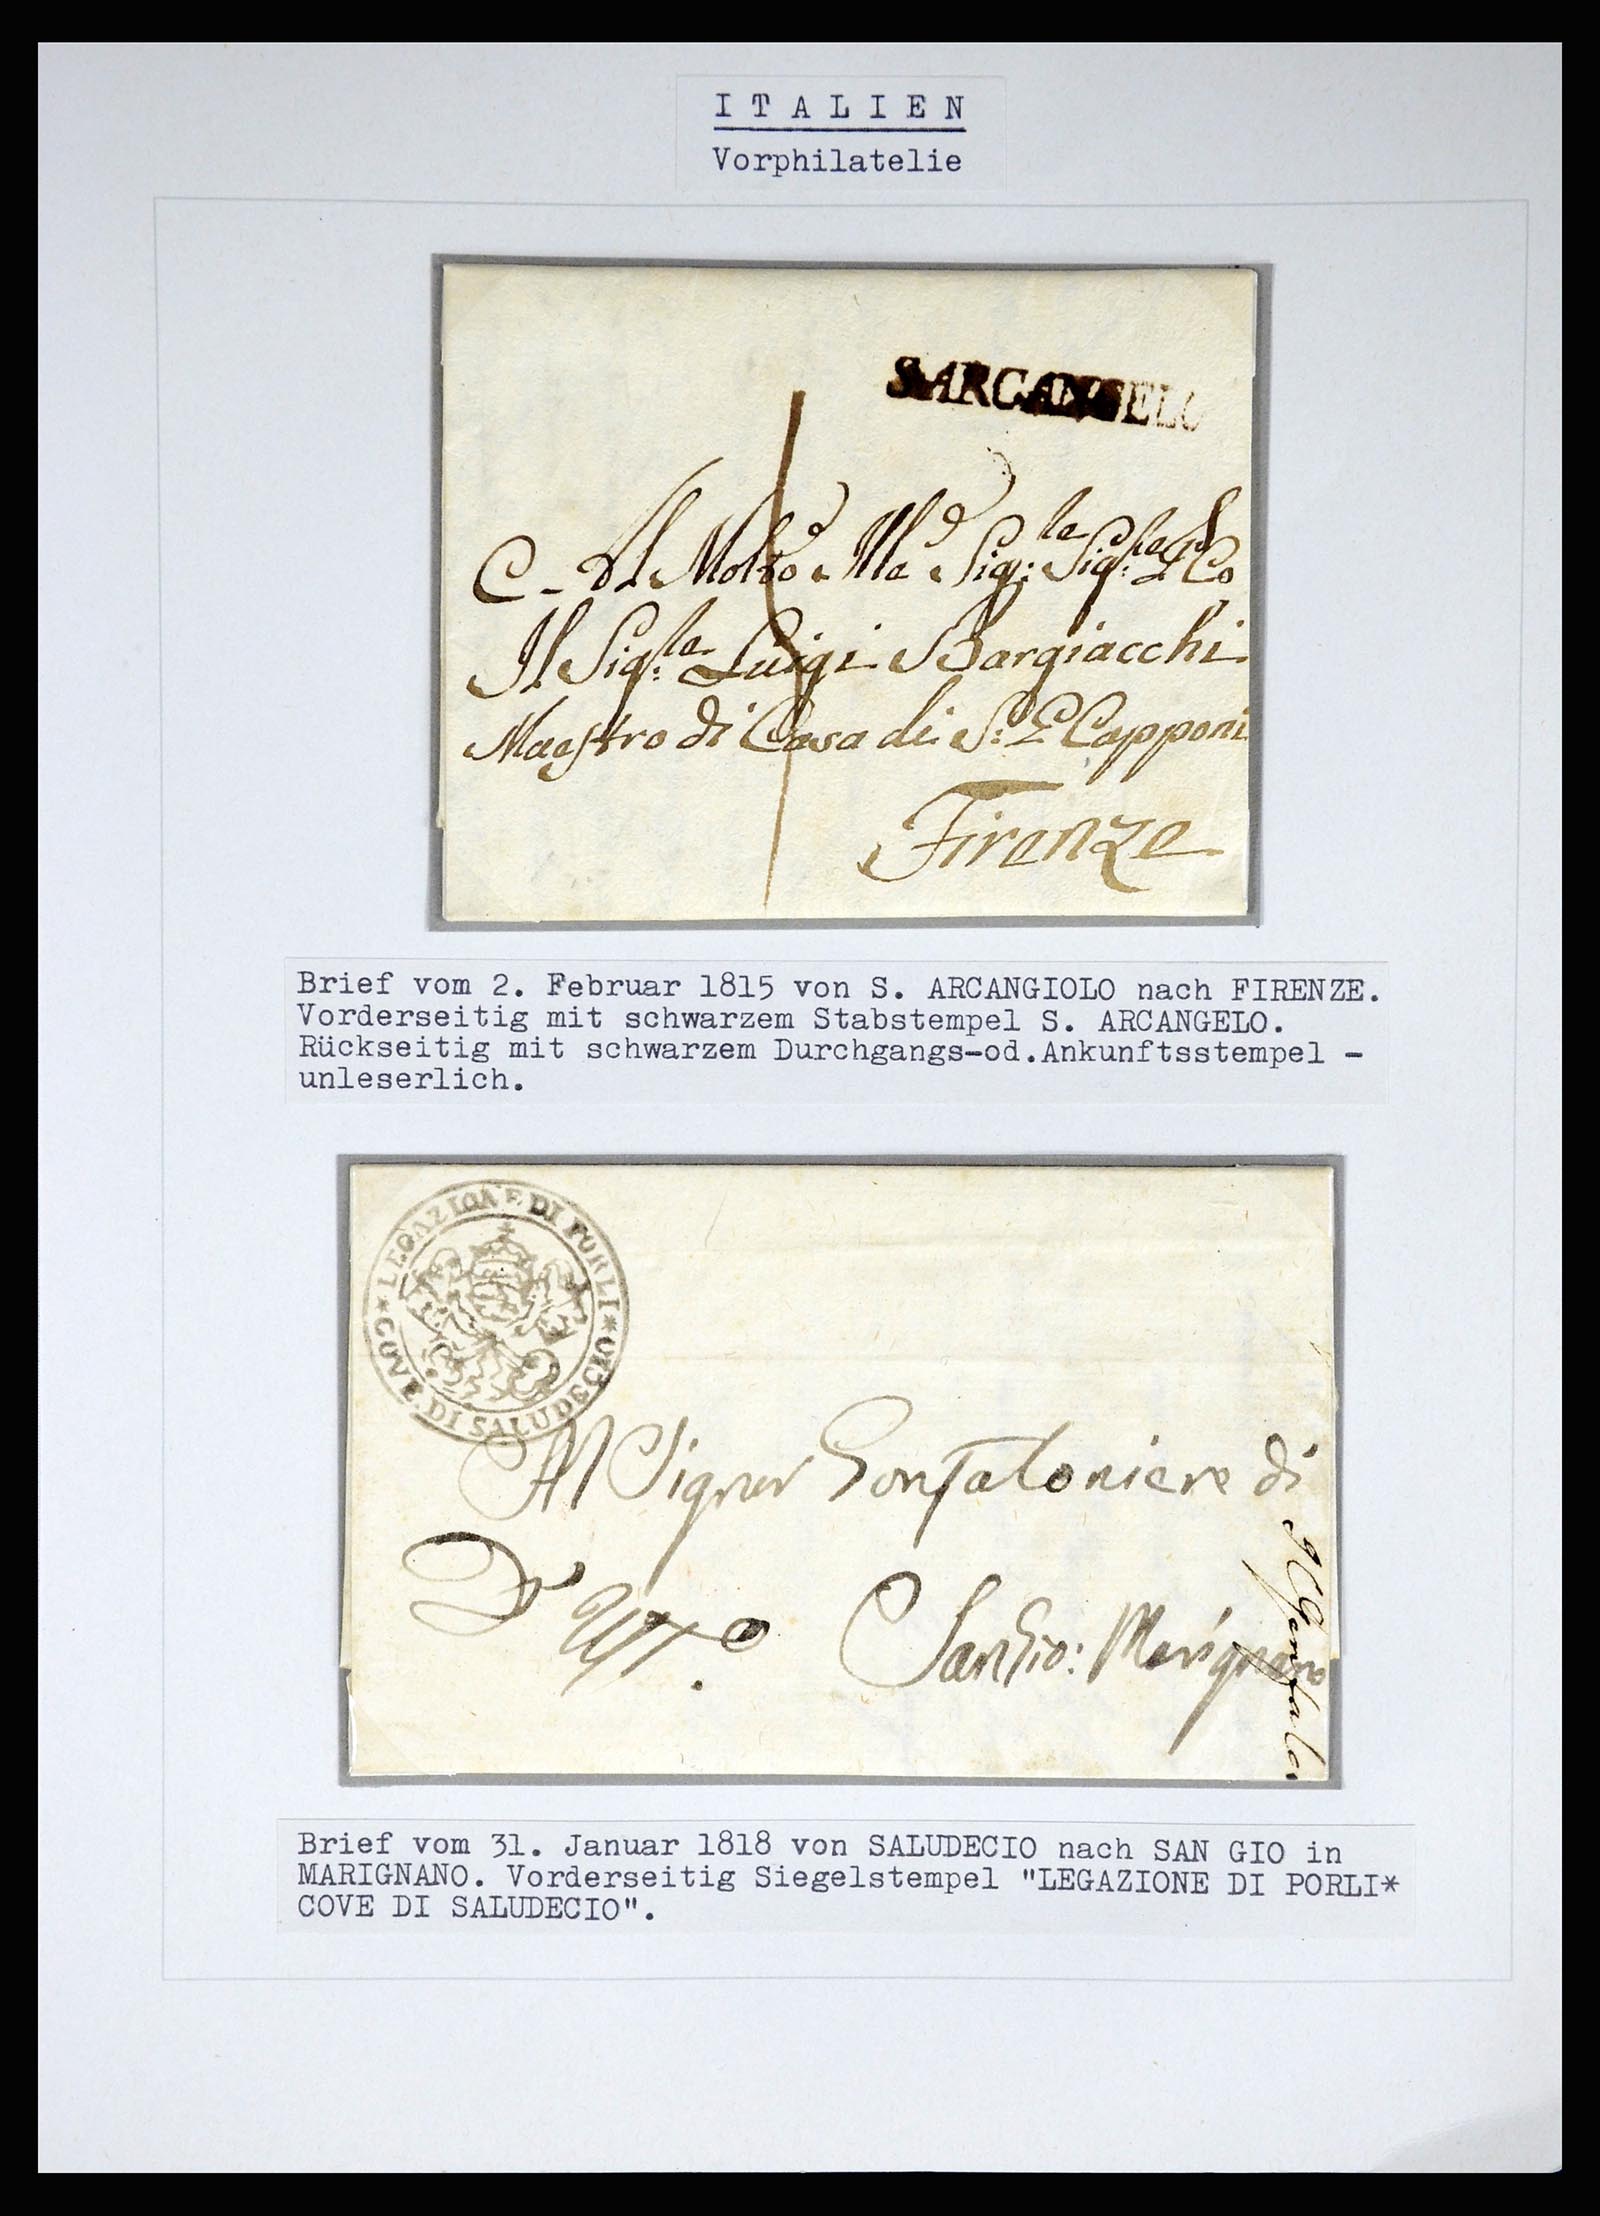 I T A L I E N
Vorphilatelie
S.ARCANGELO
Il Sig.re Luigi Bargiacchi
Maestro di Casa di S. E Capponi
Firenze
Brief vom 2. Februar 1815 von S. ARCANGIOLO nach FIRENZE.
Vorderseitig mit schwarzem Stabstempel S. ARCANGELO.
Rückseitig mit schwarzem Durchgangs-od.Ankunftsstempel -
unleserlich.
* LEGAZIONE DI FORLI * GOVE. DI SALUDECIO
Al Signor Gonfaloniere di
San Gio: Marignano
Brief vom 31. Januar 1818 von SALUDECIO nach SAN GIO in
MARIGNANO. Vorderseitig Siegelstempel "LEGAZIONE DI PORLI*
COVE DI SALUDECIO".